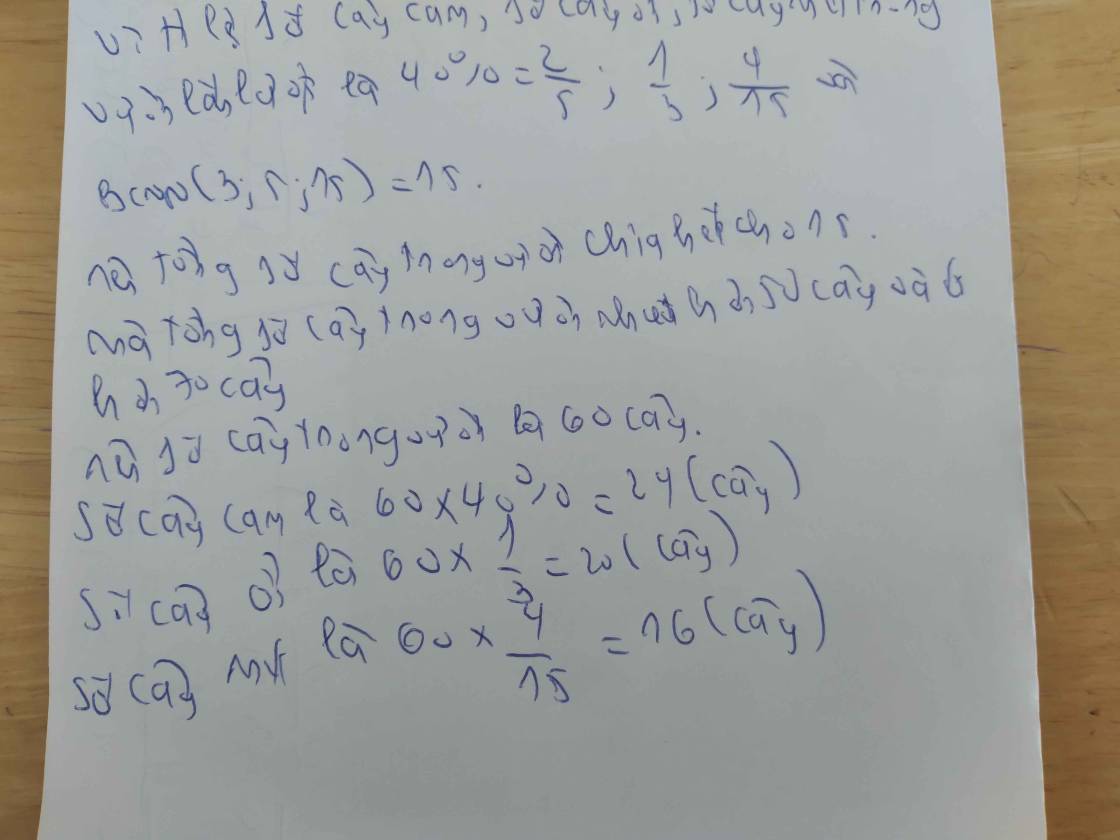 vì tỉ lệ số cây cam, số cây ổi, số cây mít trong
vườn lần lượt là 40% = 2/5 ; 1/3 ; 4/15 mà
BCNN(3; 5; 15) = 15.
nên tổng số cây trong vườn chia hết cho 15.
mà tổng số cây trong vườn nhiều hơn 50 cây và ít
hơn 70 cây
nên số cây trong vườn là 60 cây.
Số cây cam là 60 x 40% = 24 (cây)
Số cây ổi là 60 x 1/3 = 20 (cây)
Số cây mít là 60 x 4/15 = 16 (cây)